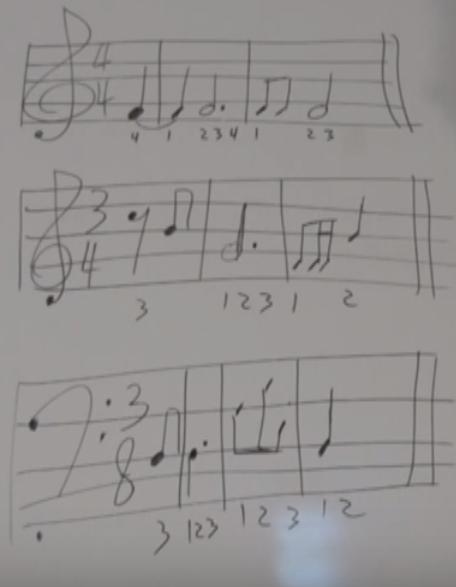 4
4
4 1 2 3 4 1 2 3
3
4
3 1 2 3 1 2
3
8
3 1 2 3 1 2 3 1 2